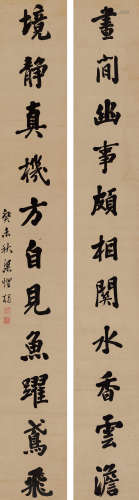 晝間幽事頗相關水香雲澹
境靜真機方自見魚躍鳶飛
癸未秋梁耀樞